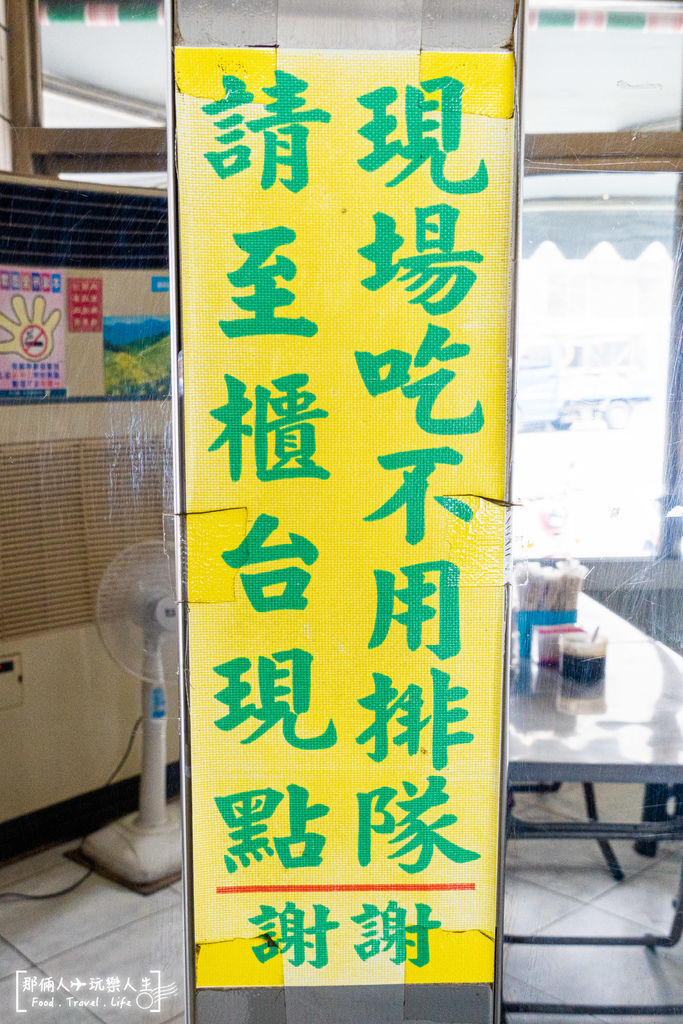 現場吃不用排隊
請至櫃台現點
謝謝
那倆人玩樂人生
Food . Travel . Life